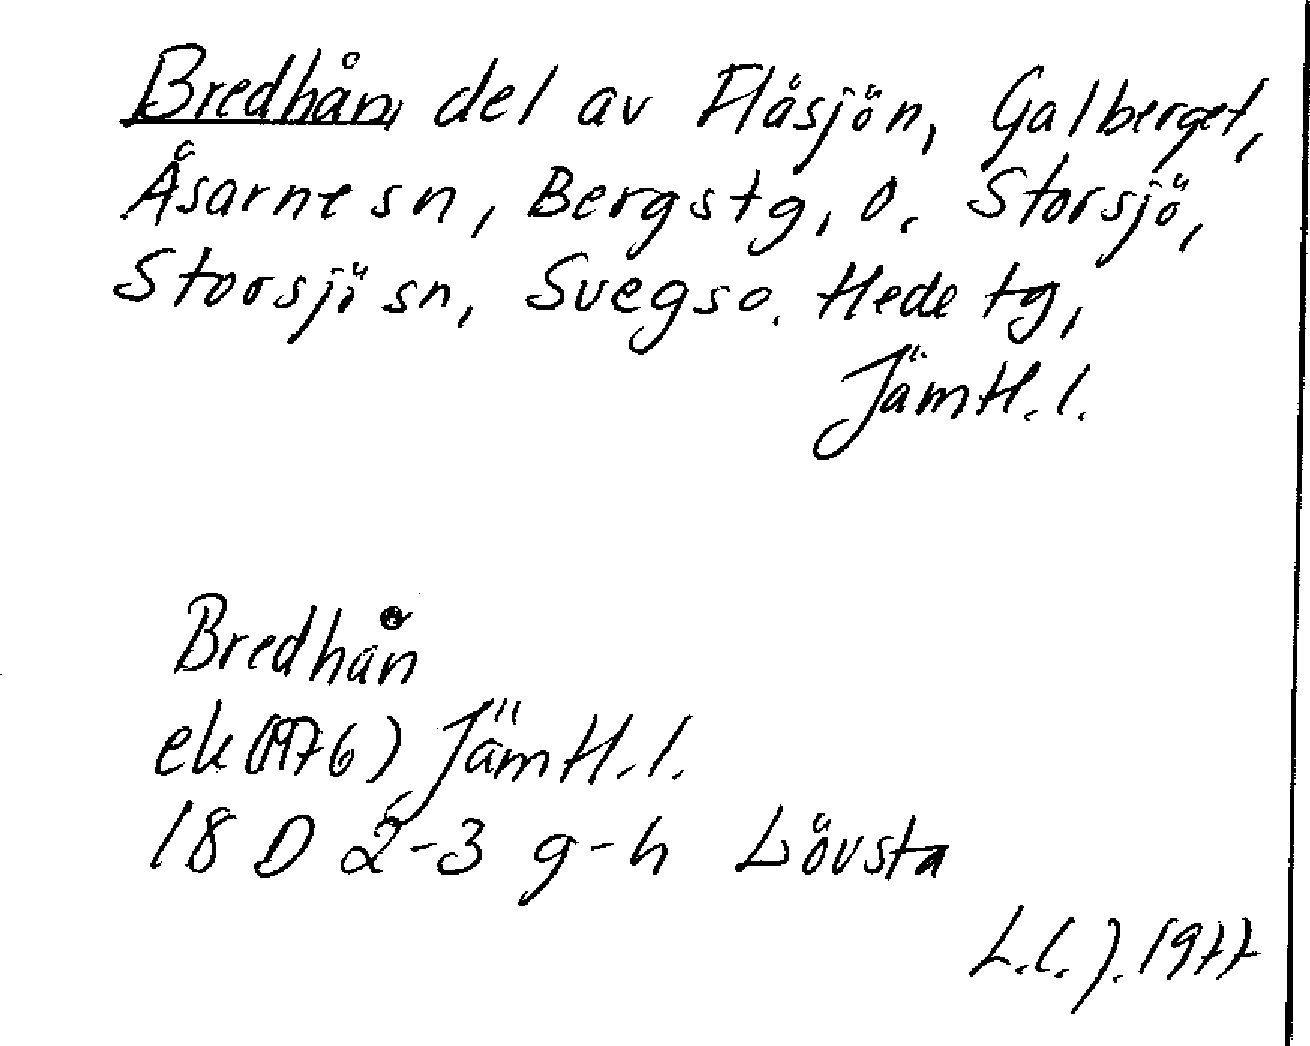 Bredhån, del av Flåsjön, Galberget,
Åsarne sn, Bergs tg, o. Storsjö,
Storsjö sn, Svegs o. Hede tg,
Jämtl. l.
Bredhån
ek (1976) Jämtl. l.
18 D 2-3 g-h Lövsta
L.C.J. 1977